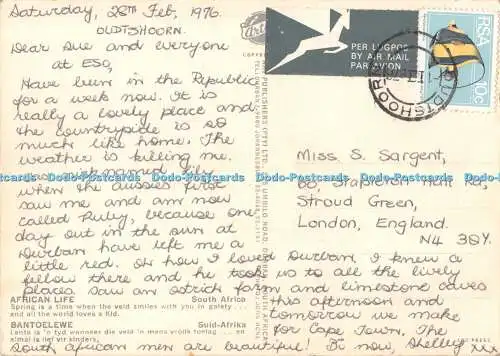 Saturday, 28TH Feb, 1976.
OUDTSHOORN.
Dear Sue and everyone
at ESO,
Have been in the Republic
for a week now. It is
really a lovely place and
the countryside is so
much like home. The
weather is killing me.
Was nicknamed Lily
when the aussies first
saw me and am now
called Ruby, because one
day out in the sun at
Durban have left me a
little red. Oh how I loved Durban. I knew a
fellow there and he took us to all the lively
places. Saw an ostrich farm and limestone caves
this afternoon and
tomorrow we make
for Cape Town. The
South african men are beautiful! Bi now, Shelley xxx
PER LUGPOS
BY AIR MAIL
PAR AVION
RSA
10c
OUDTSHOORN
Miss S. Sargent,
Stapleton Hall Rd,
Stroud Green,
London, England.
N4
AFRICAN LIFE South Africa
Spring is a time when the veld smiles with you in gaiety -
and all the world loves a Kid.
BANTOELEWE Suid-Afrika
Lente is 'n tyd wanneer die veld in mens vrolik toelag ... en
almal is lief vir kinders.
Dodo-Postcards Dodo-Postcards Dodo-Postcards Dodo-Postcards